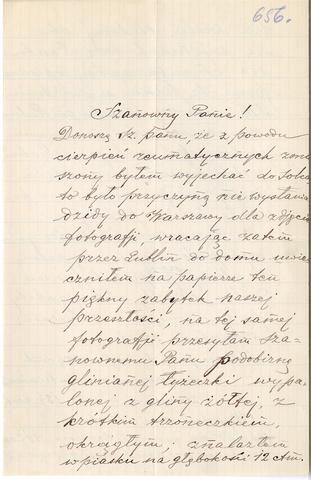 656.
Szanowny Panie!
Donoszę Sz. panu, że z powodu
cierpień reumatycznych zmu
szony byłem wyjechać do Solca
to było przyczyną nie wysłania
dzidy do Warszawy dla zdjęcia
fotografji, wracając zatem
przez Lublin do domu uwie
czniłem na papierze ten
piękny zabytek naszej
przeszłości, na tej samej
fotografji przesyłam Sza-
nownemu Panu podobiznę
glinianej łyżeczki wypa-
lonej z gliny żółtej, z
krótkim trzoneczkiem,
okrągłym; znalazłem
w piasku na głębokości 12 ctm.